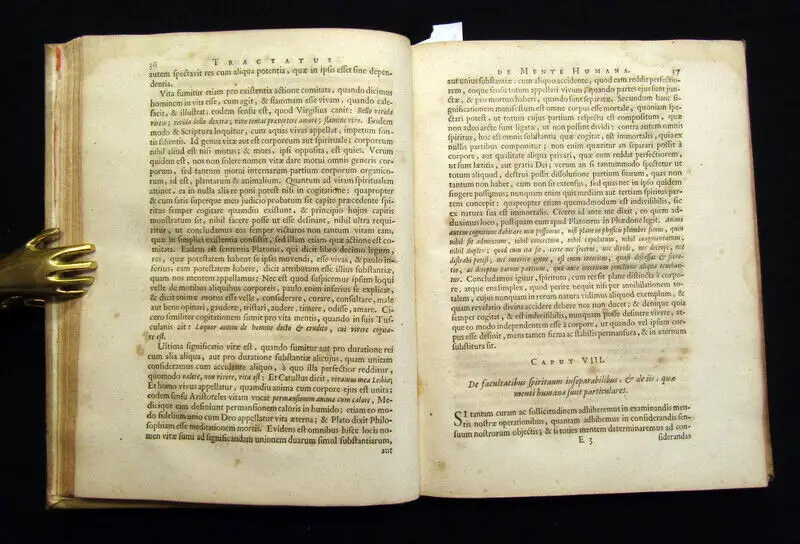 36
TRACTATUS
autem spectavit res cum aliqua potentia, quæ in ipsis esset sine depen-
dentia.
Vita sumitur etiam pro existentia actione comitata, quando dicimus
hominem in vita esse, cum agit, & flammam esse vivam, quando cale-
facit, & illustrat: eodem sensu est, quod Virgilius canit: Bello vivida
virtus: vivida bello dextra; vivo tentat prævertere amore; flumine vivo. Eodem
modo & Scriptura loquitur, cum aquas vivas appellat, impetum fon-
tis silientis. Id genus vitæ aut est corporeum aut spirituale; corporeum
nihil aliud est nisi motus; & mors, ipsi opposita, est quies. Verum
quidem est, nos non solere nomen vitæ dare motui omnis generis cor-
porum, sed tantum motui internarum partium corporum organico-
rum, id est, plantarum & animalium. Quantum ad vitam spiritualem
attinet, ea in nulla alia re poni potest nisi in cogitatione: quapropter
& cum satis superque meo judicio probatum sit capite præcedente spi-
ritus semper cogitare quandiu existunt, & principio hujus capitis
monstratum sit, nihil facere posse ut esse desinant, nihil ultra requi-
ritur, ut concludamus eos semper victuros non tantum vitam eam,
quæ in simplici existentia consistit, sed illam etiam quæ actione est co-
mitata. Eadem est sententia Platonis, qui dicit libro decimo legum,
res, quæ potestatem habent se ipsas movendi, esse vivas, & paulo in-
ferius, eam potestatem habere, dicit attributum esse illius substantiæ,
quam nos nominamus animam: Nec est quod suspicemur ipsum loqui
velle de motibus aliquibus corporeis, paulo enim inferius se explicat,
& dicit animæ motus esse velle, considerare, curare, consultare, male
aut bene opinari, gaudere, tristari, audere, timere, odisse, amare. Ci-
cero similiter cogitationem sumit pro vita mentis, quando in suis Tus-
culanis ait: Loquor autem de homine docto & erudito, cui vivere cogita-
re est.
Ultima significatio vitæ est, quando sumitur aut pro duratione rei
cum alia aliqua, aut pro duratione substantiæ alicujus, quam unitam
consideramus cum accidente aliquo, à quo illa perfectior redditur,
quomodo valere, non vivere, vita est: Et Catullus dicit, vivamus mea Lesbia;
Et homo vivus appellatur, quandiu anima cum corpore ejus est unita:
eodem sensu Aristoteles vitam vocat permansionem animæ cum calore, Me-
dicique eam definiunt permansionem caloris in humido; etiam eo mo-
do fidelium unio cum Deo appellatur vita æterna; & Plato dixit Philo-
sophiam esse meditationem mortis. Evidens est omnibus hisce locis no-
men vitæ sumi ad significandam unionem duarum simul substantiarum,
aut
DE MENTE HUMANA.
37
aut unius substantiæ, cum aliquo accidente, quod eam reddit perfectio-
rem, eoque sensu totum appellari vivum, quando partes ejus sunt jun-
ctæ, & pro mortuo habere, quando sunt separatæ. Secundum hanc si-
gnificationem manifestum est omne corpus esse mortale, quoniam spe-
ctari potest, ut totum cujus partium respectu est compositum, quæ
non adeo arcte sunt ligatæ, ut non possint dividi: contra autem omnis
spiritus, hoc est omnis substantia quæ cogitat, est immortalis, quia ex
nullis partibus componitur; non enim quæritur an separari possit à
corpore, aut qualitate aliqua privari, quæ eum reddat perfectiorem,
ut sunt lætitia, aut gratia Dei; verum an si tantummodo spectetur ut
totum aliquod, destrui possit dissolutione partium suarum, quas non
tantum non habet, cum non sit extensus, sed quas nec in ipso quidem
fingere possumus; nunquam enim quis mediam aut tertiam spiritus par-
tem concepit: quapropter etiam quemadmodum est indivisibilis, sic
ex natura sua est immortalis. Cicero id ante me dixit, ne quem ad-
ducamus loco, postquam eum apud Platonem in Phædone legit. Animi
autem cognitione dubitare non possumus, nisi plane in physicis plumbei simus, quin
nihil sit admixtum, nihil concretum, nihil copulatum, nihil coagmentatum,
nihil duplex: quod cum ita sit, certe nec secerni, nec dividi, nec decerpi, nec
distrahi potest, nec interire igitur, est enim interitus, quasi discessus & secre-
tio, ac direptus earum partium, quæ ante interitum junctione aliqua tenebantur.
Concludamus igitur, spiritum, cum res sit plane distincta à corpo-
re, atque ens simplex, quod perire nequit nisi per annihilationem to-
talem, cujus nunquam in rerum natura vidimus aliquod exemplum, &
quam revelatio divina accidere debere nos non docet; & denique quia
semper cogitat, & est indivisibilis, nunquam posse desinere vivere, at-
que eo modo independentem esse à corpore, ut quando vel ipsum cor-
pus esse desinit, mens tamen firma ac stabilis permansura, & in æternum
substitura sit.
CAPUT VIII.
De facultatibus spirituum inseparabilibus, & de iis, quæ
menti humanæ sunt particulares.
SI tantam curam ac sollicitudinem adhiberemus in examinandis men-
tis nostræ operationibus, quantam adhibemus in considerandis sen-
suum nostrorum objectis; & si toties mentem determinaremus ad con-
E 3
siderandas